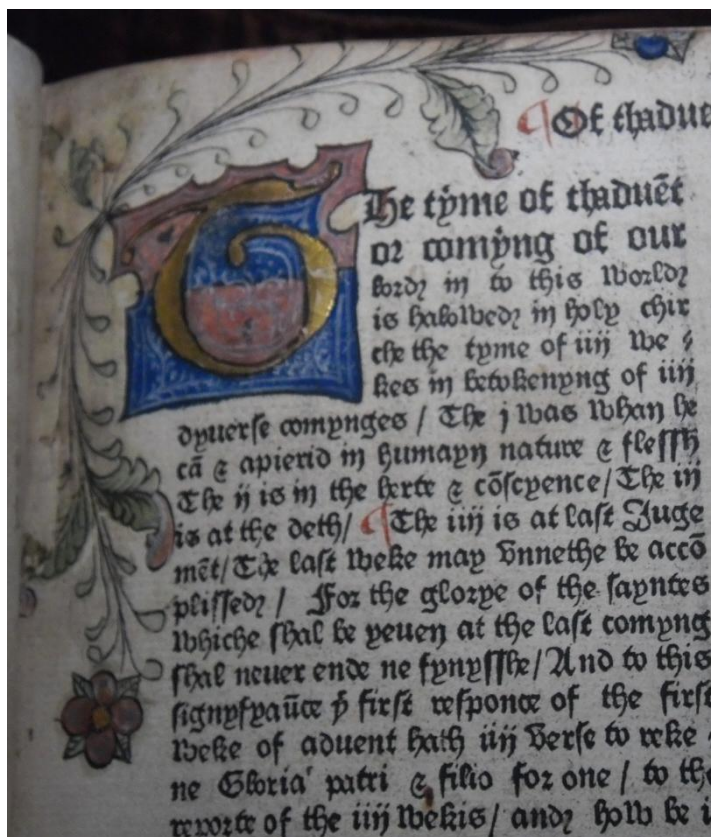 ¶Of thadue
The tyme of thaduēt
or comyng of our
lord in to this world
is halowed in holy chir
che the tyme of iiij we
kes in betokenyng of iiij
dyuerse comynges / The j was whan he
cā & apierid in humayn nature & flessh
The ij is in the herte & cōscyence / The iij
is at the deth / ¶The iiij is at last Iuge
mēt / The last weke may vnnethe be accō
plissed / For the glorye of the sayntes
whiche shal be yeuen at the last comyng
shal neuer ende ne fynysshe / And to this
signyfyaūce yͤ first responce of the first
weke of aduent hath iiij verse to reke
ne Gloria patri & filio for one / to the
reporte of the iiij wekis / and how be i